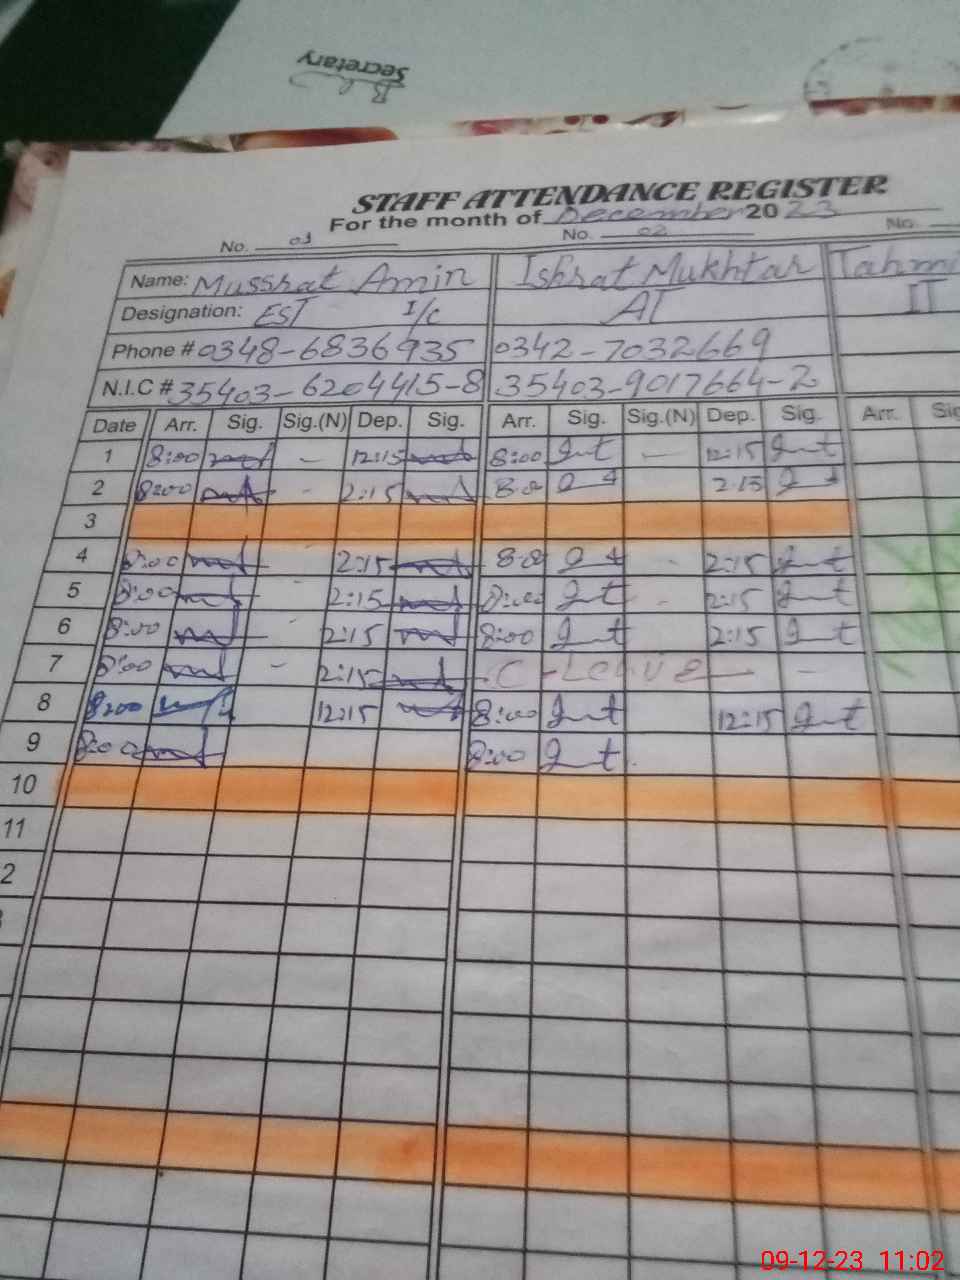 Secretary
STAFF ATTENDANCE REGISTER
For the month of December 2023
No. 01 No. 02 No.
Name: Mussrat Amin Ishrat Mukhtar Tahmi
Designation: EST I/c AT IT
Phone # 0348-6836935 0342-7032669
N.I.C # 35403-6204415-8 35403-9017664-2
Date Arr. Sig. Sig.(N) Dep. Sig. Arr. Sig. Sig.(N) Dep. Sig. Arr. Sig
1 8:00 - 12:15 8:00 - 12:15
2 8:00 - 2:15 8:0 2:15
3
4 8:00 - 2:15 8:0 - 2:15
5 8:00 - 2:15 8:00 - 2:15
6 8:00 - 2:15 8:00 2:15
7 8:00 - 2:15 C-Leave
8 8:00 12:15 8:00 12:15
9 8:00 8:00
10
11
2
09-12-23 11:02